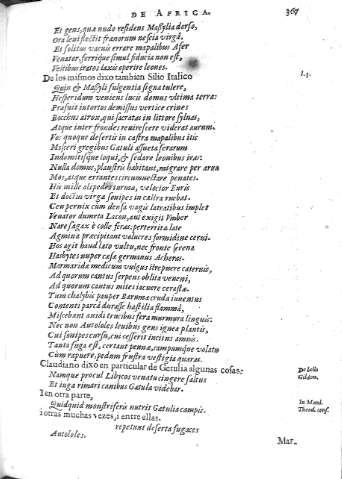 DE AFRICA. 367
Et gens, quæ nudo residens Massylia dorso,
Ora leui flectit frænorum nescia virga.
Et solitus vacuis errare mapalibus Afer
Venator, ferrique simul fiducia non est,
Vestibus iratos laxis operire leones.
De los mismos dixo tambien Silio Italico
Quin & Massyli fulgentia signa tulere,
Hesperidum veniens lucis domus vltima terræ:
Præfuit intortos demissus vertice crines
Bocchus atrox, qui sacratas in littore syluas,
Atque inter frondes reuirescere viderat aurum.
Vos quoque desertis in castra mapalibus itis
Misceri gregibus Getuli assueta ferarum
Indomitisque loqui, & sedare leonibus iras:
Nulla domus, plaustris habitant, migrare per arua
Mos, atque errantes circumuectare penates.
Hi mille alipedes turmæ, velocior Euris
Et doctus virgæ sonipes in castra ruebat.
Ceu pernix cum densa vagis latratibus implet
Venator dumeta Lacon, aut exigit Vmber
Nare sagax è colle feras: perterrita late
Agmina præcipitant volucres formidine cerui.
Hos agit haud læto vultu, nec fronte serena
Asbytes nuper cæsæ germanus
Marmaridæ medicum vulgus strepuere cateruis,
Ad quorum cantus serpens oblita veneni,
Ad quorum cantus mites iacuere cerastæ.
Tum chalybis pauper Baniuræ cruda iuuentus
Contenti parca durasse hastilia flamma,
Miscebant auidi trucibus fera murmura linguis:
Nec non Autololes leuibus gens ignea plantis,
Cui sonipes cursu, cui cesserit incitus amnis.
Tanta fuga est, certant pennæ, campumque volatu
Cum rapuere, pedum frustra vestigia quæras.
Claudiano dixo en particular de Getulia algunas cosas:
Namque procul Libycos venatu cingere saltus
Et iuga rimari canibus Gætula videbar.
I en otra parte,
Quidquid monstriferis nutrit Gætulia campis.
i otras muchas vezes, i entre ellas.
repetunt deserta fugaces
Autololes. Mar-
De bello
Gildon.
In Manl.
Theod. cons.